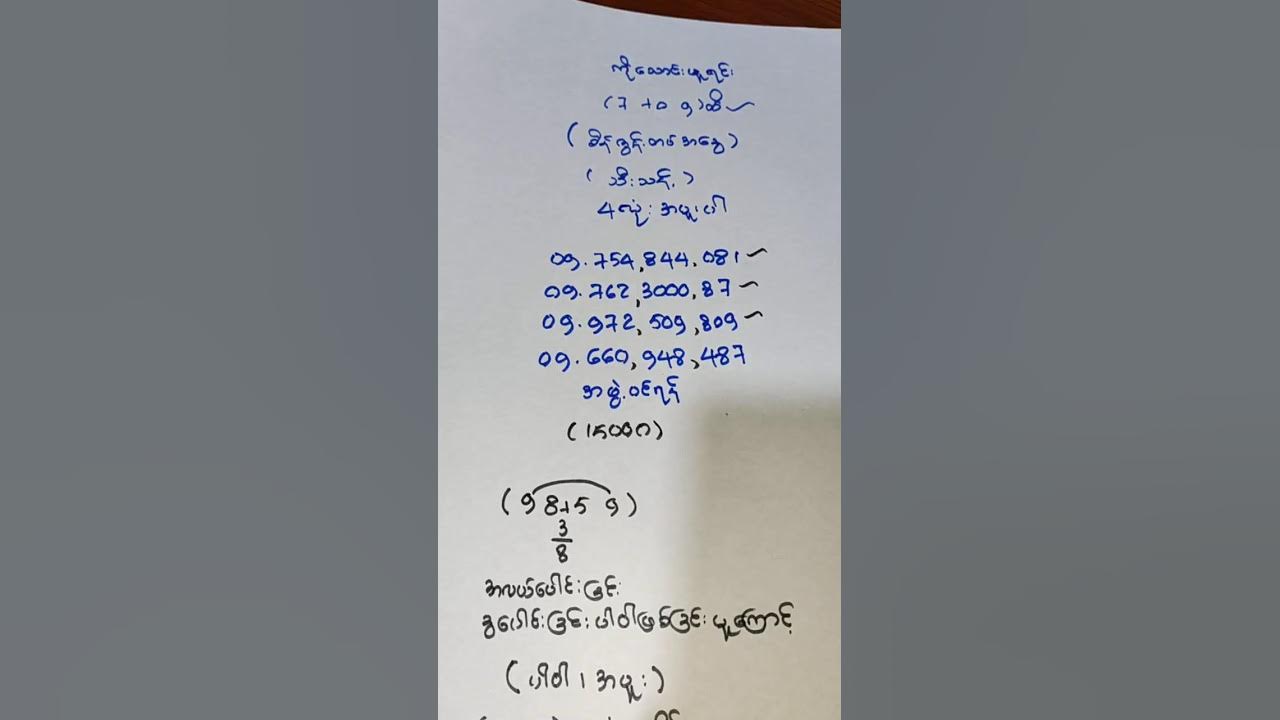 ကိုသောင်းယူရင်း
(7 +0 9)ဆီ
(စိန်ခွန်းတစ်အခွေ)
(သီးသန့်)
4လုံး အပူးပါ
09.754,844,081
09.762,3000,87
09.972,509,809
09.660,948,487
အဖွဲ့ဝင်ရန်
(15000)
(9 8+5 9)
3
8
အလယ်ပေါင်းခြင်း
ခွပေါင်းခြင်း ပါဝါဖြစ်ခြင်း ယူကြောင့်
(ပါဝါ ၊ အပူး)